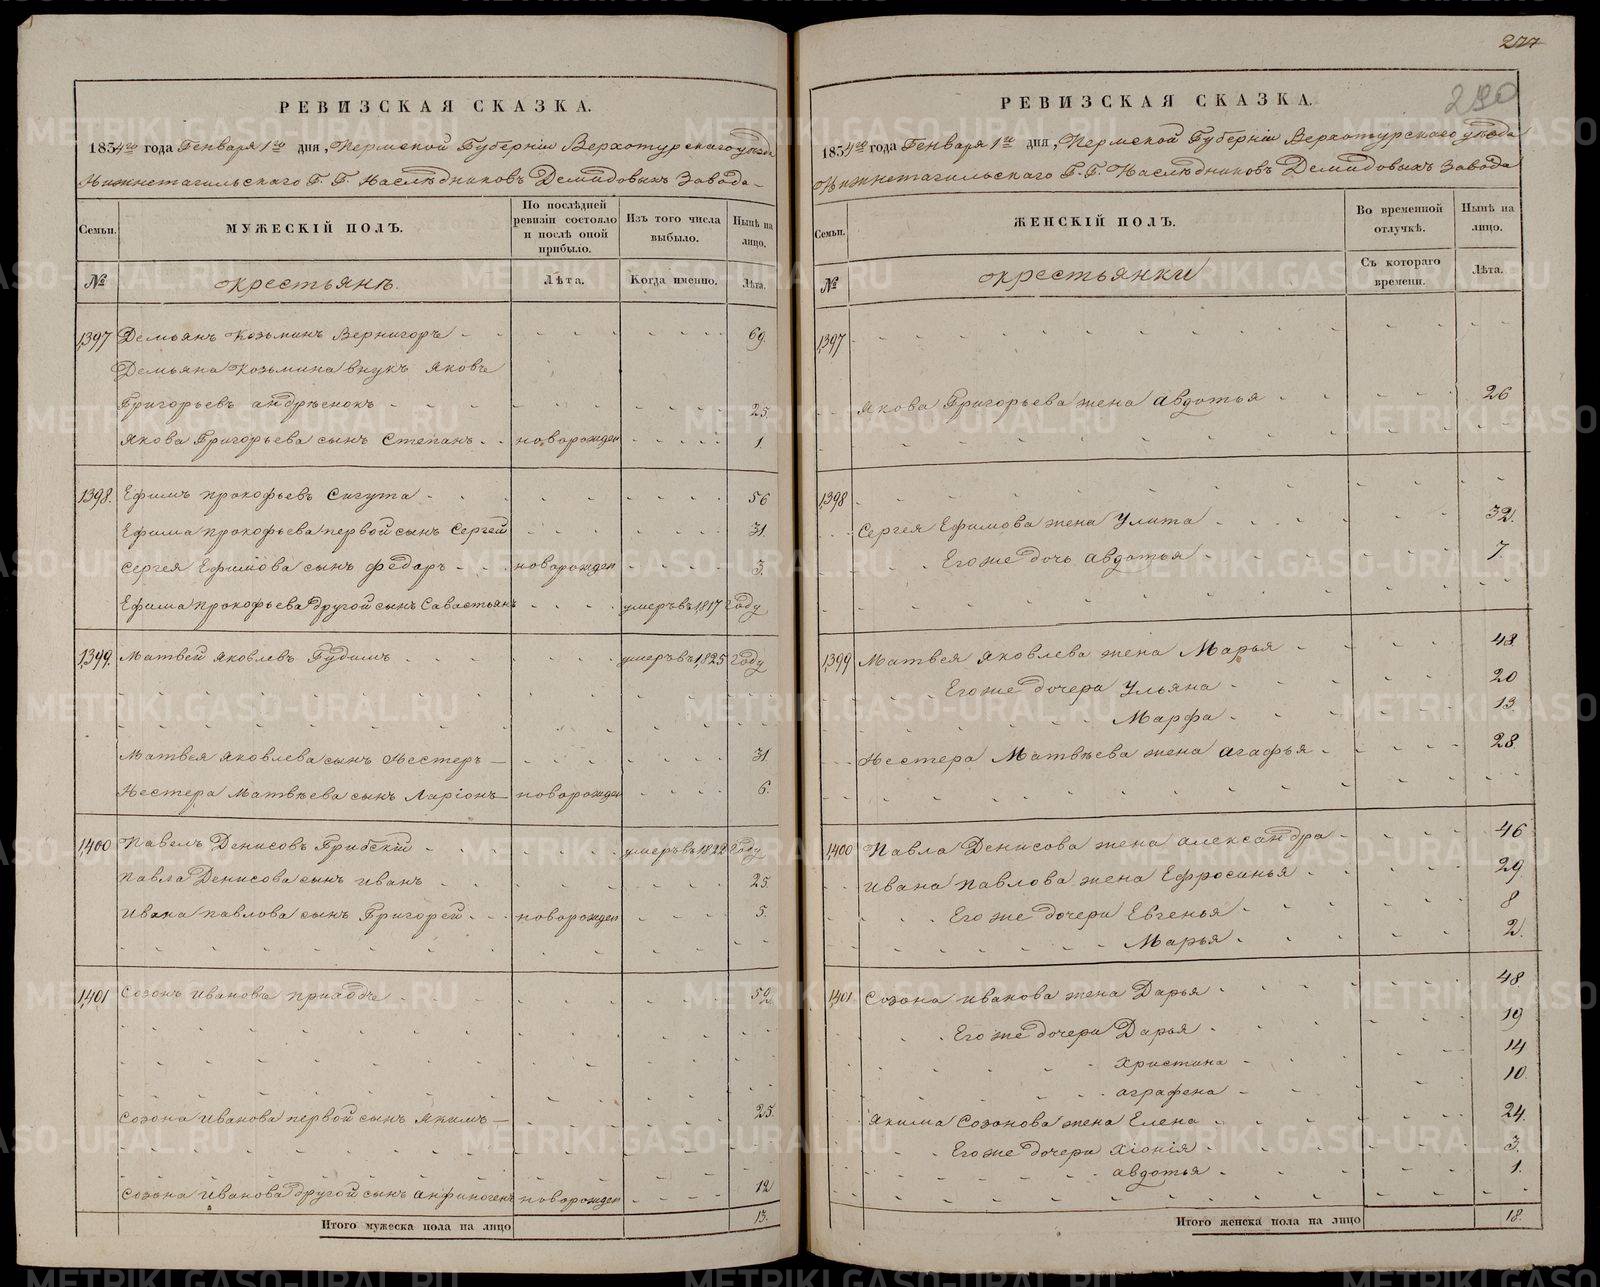 277
290
РЕВИЗСКАЯ СКАЗКА.
1834го года Генваря 1го дня, Пермской Губернiи Верхотурскаго уѣзда
Нижнетагильскаго Г. Г. Наслѣдниковъ Демидовыхъ Завода
Семьи.
МУЖЕСКIЙ ПОЛЪ.
По послѣдней ревизiи состояло и послѣ оной прибыло.
Изъ того числа выбыло.
Нынѣ на лицо.
№
крестьянъ.
Лѣта.
Когда именно.
Лѣта.
1397 Демьянъ Козьминъ Вернигоръ 69.
Демьяна Козьмина внукъ Яковъ
Григорьевъ Андрѣенокъ 25
Якова Григорьева сынъ Степанъ новорожден 1.
1398. Ефимъ Прокофьевъ Сигута 56
Ефима Прокофьева первой сынъ Сергей 31.
Сергея Ефимова сынъ Федаръ новорожден 3.
Ефима Прокофьева другой сынъ Савастьянъ умеръ въ 1817 Году
1399. Матвей Яковлевъ Гудимъ умеръ въ 1825 Году
Матвея Яковлева сынъ Нестеръ 31.
Нестера Матвѣева сынъ Ларiонъ новорожден 6.
1400 Павелъ Денисовъ Грибскiй умеръ въ 1822 Году
Павла Денисова сынъ Иванъ 25.
Ивана Павлова сынъ Григорей новорожден 5.
1401 Созонъ Ивановъ 50
Созона Иванова первой сынъ Якимъ 25.
Созона Иванова другой сынъ Анфиногенъ новорожден 12
Итого мужеска пола на лицо 13.
РЕВИЗСКАЯ СКАЗКА.
1834го года Генваря 1го дня, Пермской Губернiи Верхотурскаго уѣзда
Нижнетагильскаго Г. Г. Наслѣдниковъ Демидовыхъ Завода
Семьи.
ЖЕНСКIЙ ПОЛЪ.
Во временной отлучкѣ.
Нынѣ на лицо.
№
крестьянки
Съ котораго времени.
Лѣта.
1397
Якова Григорьева жена Авдотья 26
1398
Сергея Ефимова жена Улита 32.
Его же дочь Авдотья 7
1399 Матвея Яковлева жена Марья 48
Его же дочери Ульяна 20
Марфа 13
Нестера Матвѣева жена Агафья 28
1400 Павла Денисова жена Александра 46
Ивана Павлова жена Ефросинья 29
Его же дочери Евгенья 8
Марья 2.
1401. Созона Иванова жена Дарья 48.
Его же дочери Дарья 19
Христина 14
Аграфена 10
Якима Созонова жена Елена 24.
Его же дочери Хiонiя 3.
Авдотья 1.
Итого женска пола на лицо 18.
METRIKI.GASO-URAL.RU